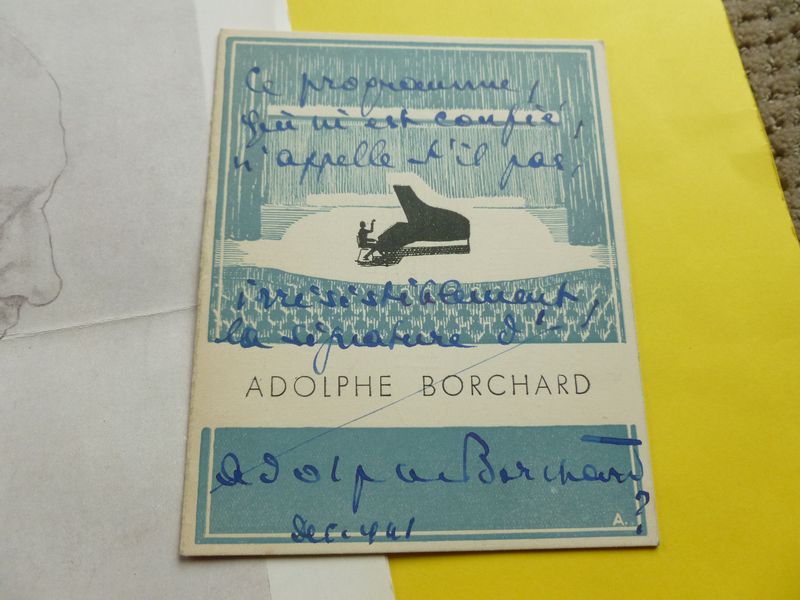 Ce programme,
qui m'est confié,
n'appelle t'il pas,
irrésistiblement,
la signature d'-
ADOLPHE BORCHARD
Adolphe Borchard
?
Dec. 1941
A.